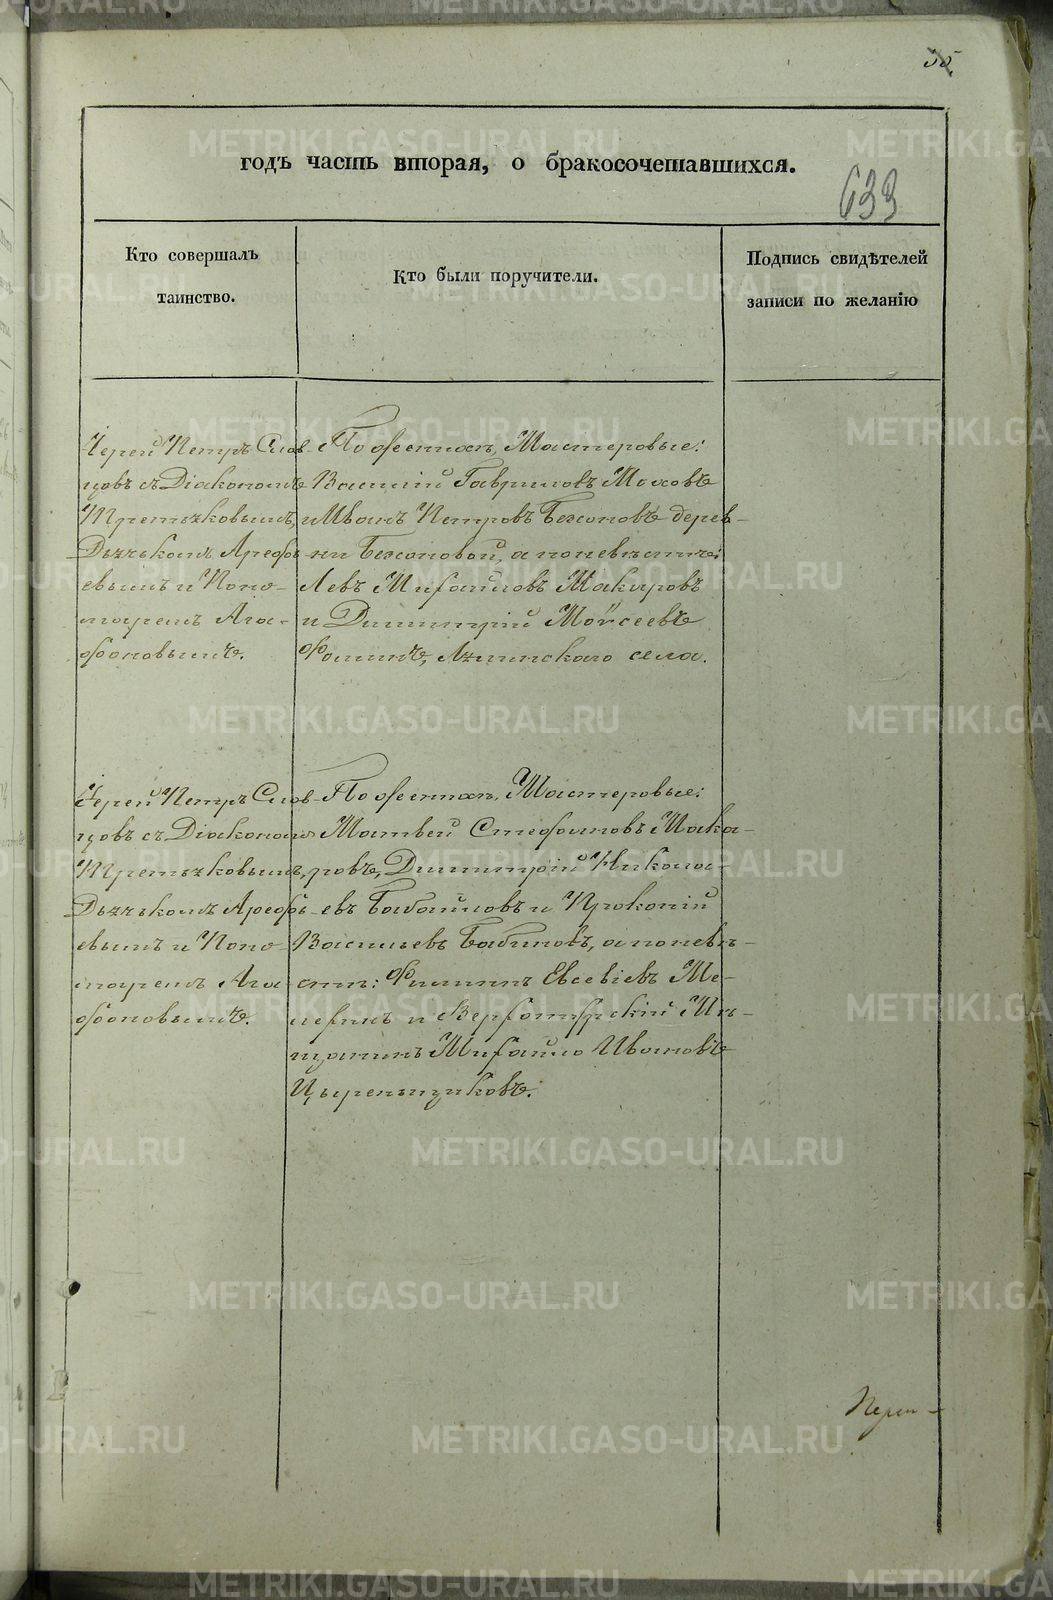 35
годъ часть вторая, о бракосочетавшихся.
633
Кто совершалъ
таинство.
Кто были поручители.
Подпись свидѣтелей
записи по желанію
Іерей Петръ Слов-
цовъ съ Діакономъ
Третьяковымъ,
Дьячькомъ Ареѳь-
евымъ и Поно-
маремъ Ага-
ѳоновымъ.
По женихѣ, Мастеровые:
Василій Гавриловъ Моховъ
и Иванъ Петровъ Бекоповъ дерев-
ни Бекоповой, а по невѣстѣ:
Левъ Михайловъ Макаровъ
и Димитрій Моѵсеевъ
Ѳоминъ, Лаинскаго села.
Іерей Петръ Слов-
цовъ съ Діакономъ
Третьяковымъ,
Дьячькомъ Ареѳь-
евымъ и Поно-
маремъ Ага-
ѳоновымъ.
По женихѣ, Мастеровые:
Матвѣй Стефановъ Мака-
ровъ, Димитрій Никола-
евъ Бабайловъ и Прокопій
Васильевъ Бабиновъ, а по невѣ-
стѣ: Филиппъ Евсевіевъ Ме-
лехинъ и Верхотурскій Мѣ-
щанинъ Михайло Ивановъ
Цыреньщиковъ.
METRIKI.GASO-URAL.RU